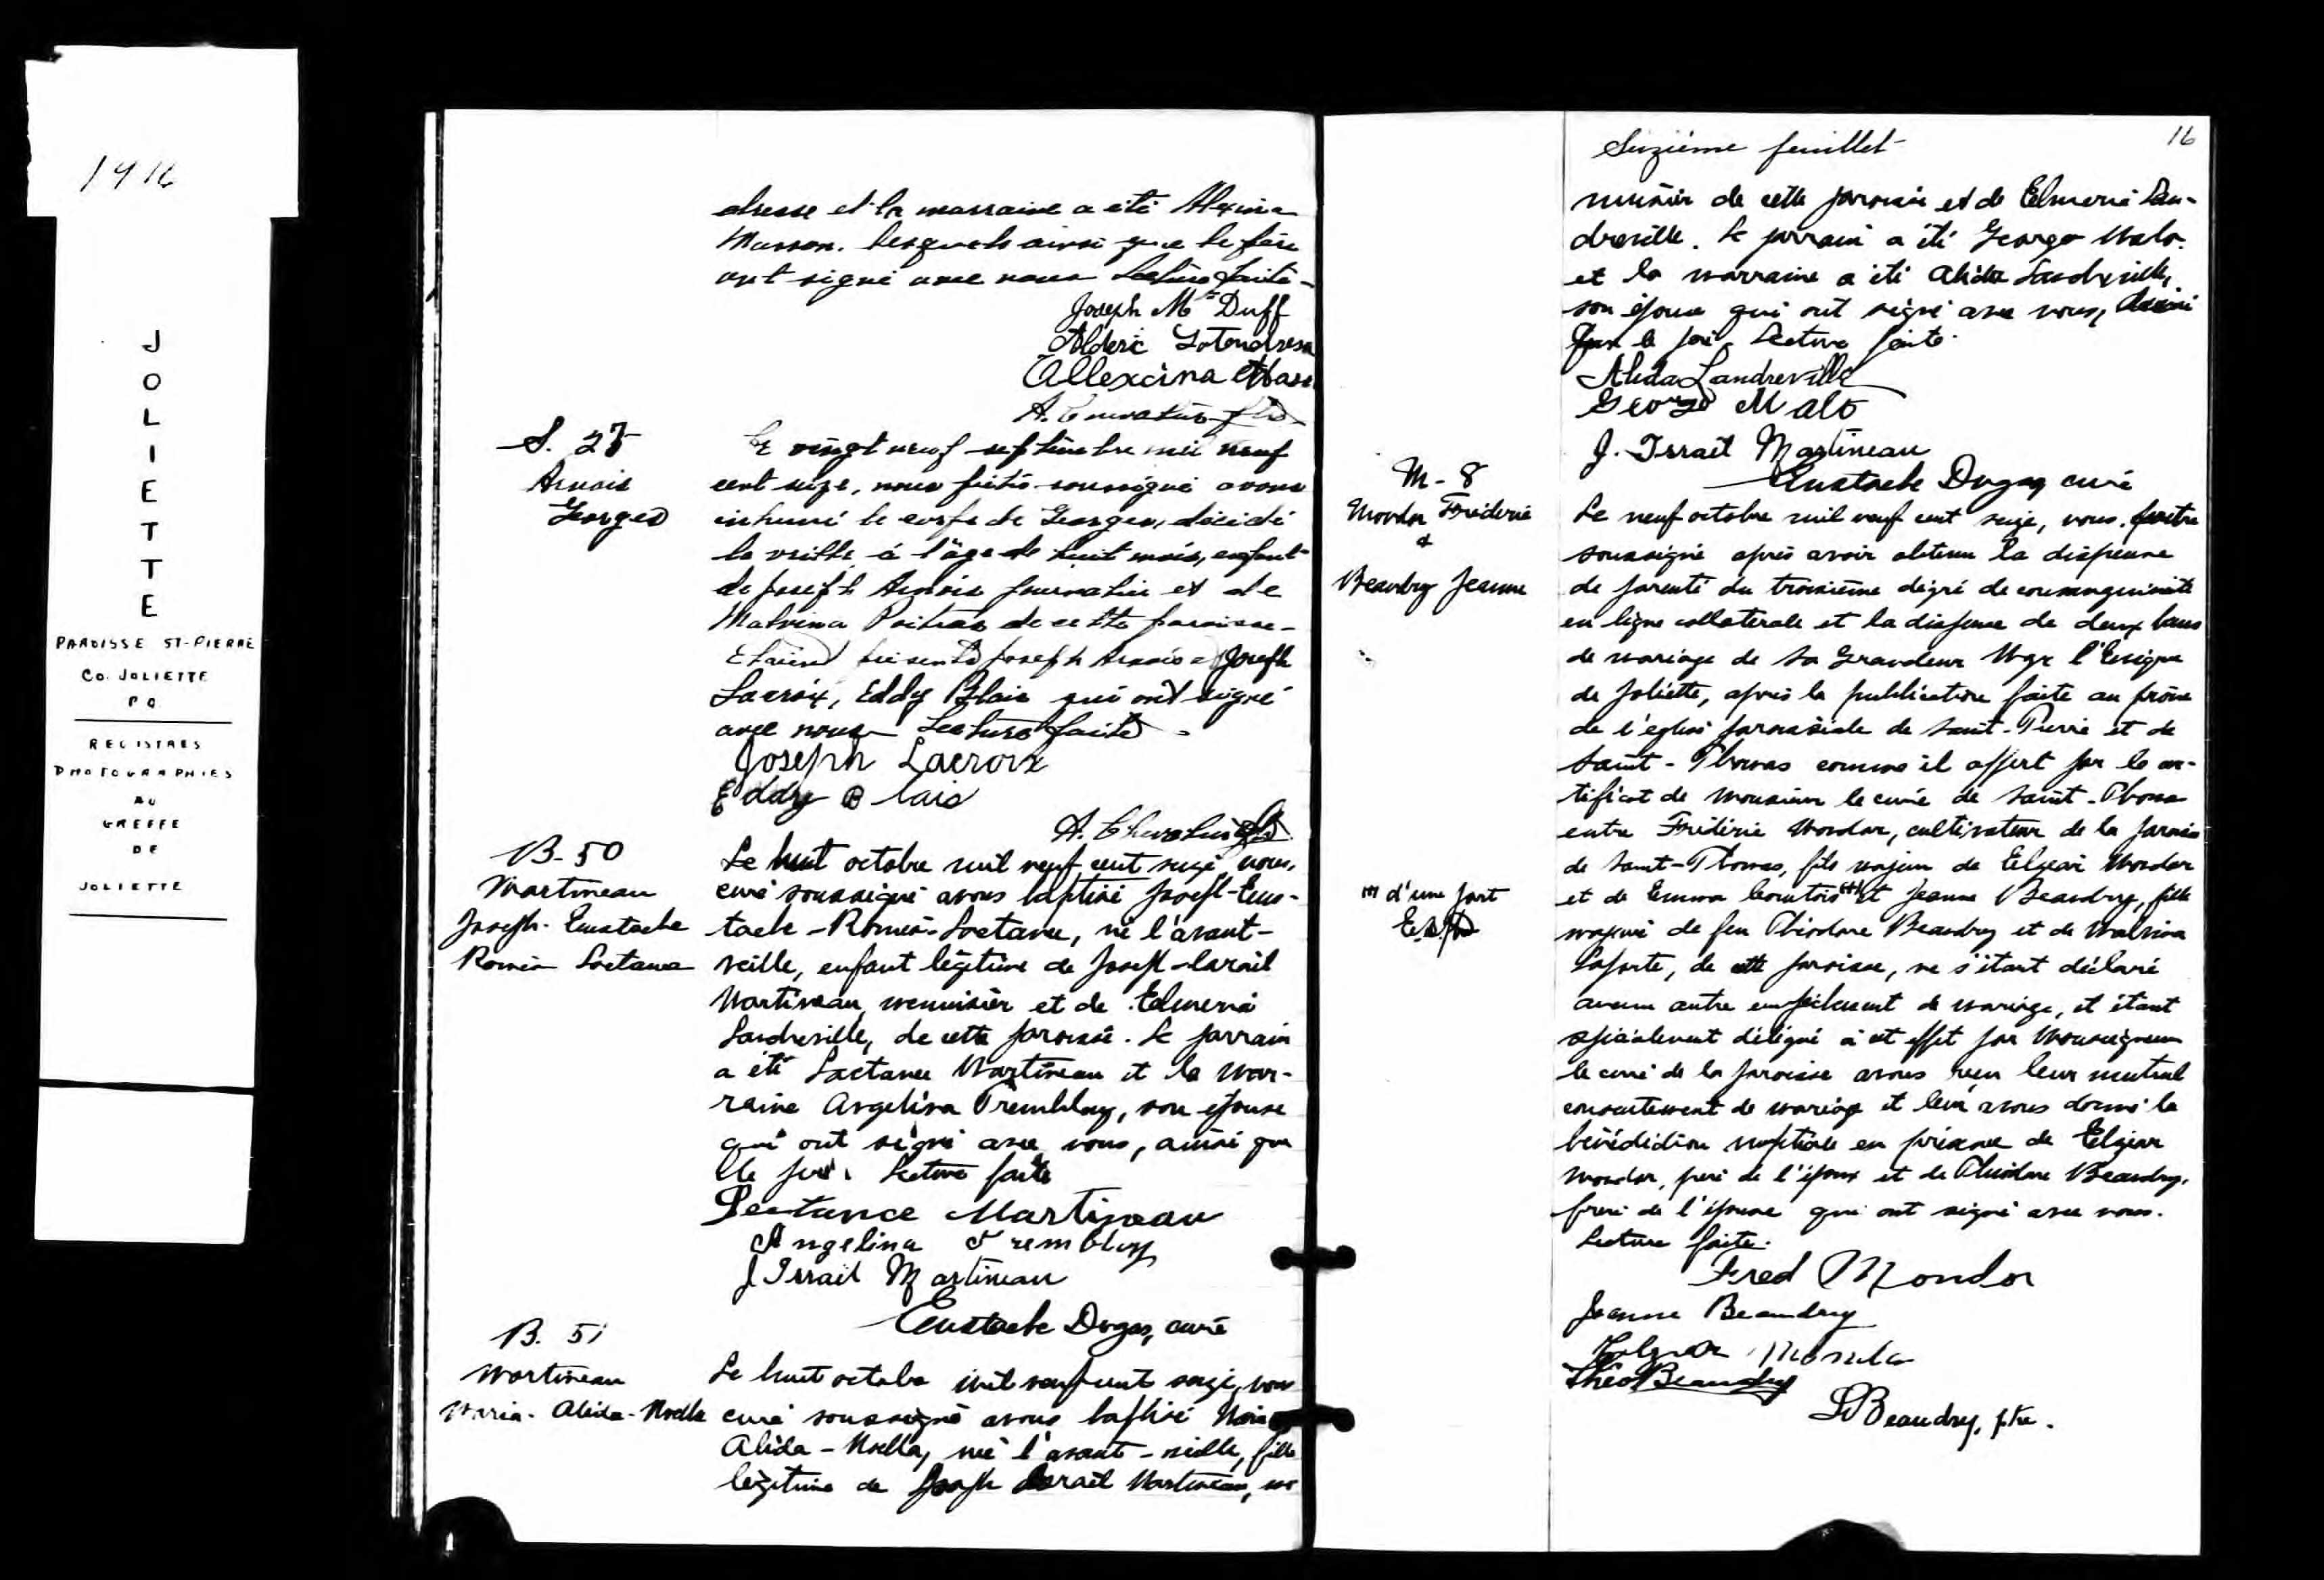 1916
J
O
L
I
E
T
T
E
PAROISSE ST-PIERRE
CO. JOLIETTE
P Q
REGISTRES
PHOTOGRAPHIÉS
AU
GREFFE
DE
JOLIETTE
dresse et la marraine a été Alexina
Masson. Lesquels ainsi que le père
ont signé avec nous Lecture faite -
Joseph Mc Duff
Alderic Latendresse
Allexcina Mass
S. 25
Arnois
Georges
Le vingt neuf septembre mil neuf
cent seize, nous prêtre soussigné avons
inhumé le corps de Georges, décédé
la veille à l'âge de huit mois, enfant
de Joseph Arnois journalier et de
Malvina Poitras de cette paroisse -
Étaient présents Joseph Arnois & Joseph
Lacroix, Eddy Blais qui ont signé
avec nous Lecture faite -
Joseph Lacroix
Eddy Blais
A. Chevalier ptre
B-50
Martineau
Joseph-Eustache
Roméo Lactance
Le huit octobre mil neuf cent seize, nous,
curé soussigné avons baptisé Joseph-Eus-
tache-Roméo-Lactance, né l'avant-
veille, enfant légitime de Joseph-Israël
Martineau, menuisier et de Edmeria
Landreville, de cette paroisse. Le parrain
a été Lactance Martineau et la mar-
raine Angelina Tremblay, son épouse
qui ont signé avec nous, ainsi que
le père. Lecture faite
Lectance Martineau
Angelina Tremblay
J Israël Martineau
Eustache Dugas, curé
B. 51
Martineau
Maria-Alida-Noella
Le huit octobre mil neuf cent seize, nous
curé soussigné avons baptisé Maria
Alida-Noella, née l'avant-veille, fille
légitime de Joseph Israël Martineau, me
Seizième feuillet
16
nuisier de cette paroisse et de Edmeria Lan-
dreville. Le parrain a été George Malo
et la marraine a été Alida Landreville,
son épouse qui ont signé avec nous, ainsi
que le père. Lecture faite.
Alida Landreville
George Malo
J. Israël Martineau
Eustache Dugas curé
M-8
Mondor Frédéric
&
Beaudry Jeanne
Le neuf octobre mil neuf cent seize, nous, prêtre
soussigné après avoir obtenu la dispense
de parenté du troisième dégré de consanguinité
en ligne collatérale et la dispense de deux bans
de mariage de Sa Grandeur Mgr l'Evêque
de Joliette, après la publication faite au prône
de l'église paroissiale de Saint-Pierre et de
Saint-Thomas comme il appert par le cer-
tificat de Monsieur le curé de Saint-Thomas
entre Frédéric Mondor, cultivateur de la paroisse
de Saint-Thomas, fils majeur de Elzéar Mondor
et de Emma Courtois (m) et Jeanne Beaudry, fille
m d'une part
majeure de feu Théodore Beaudry et de Malvina
Laporte, de cette paroisse, ne s'étant déclaré
aucun autre empêchement de mariage, et étant
spécialement délégué à cet effet par Monseigneur
le curé de la paroisse avons reçu leur mutuel
consentement de mariage et leur avons donné la
bénédiction nuptiale en présence de Elzéar
Mondor, père de l'époux et de Théodore Beaudry,
frère de l'épouse qui ont signé avec nous.
Lecture faite.
Fred Mondor
Jeanne Beaudry
Elzear Mondor
Théo Beaudry
Beaudry, ptre.